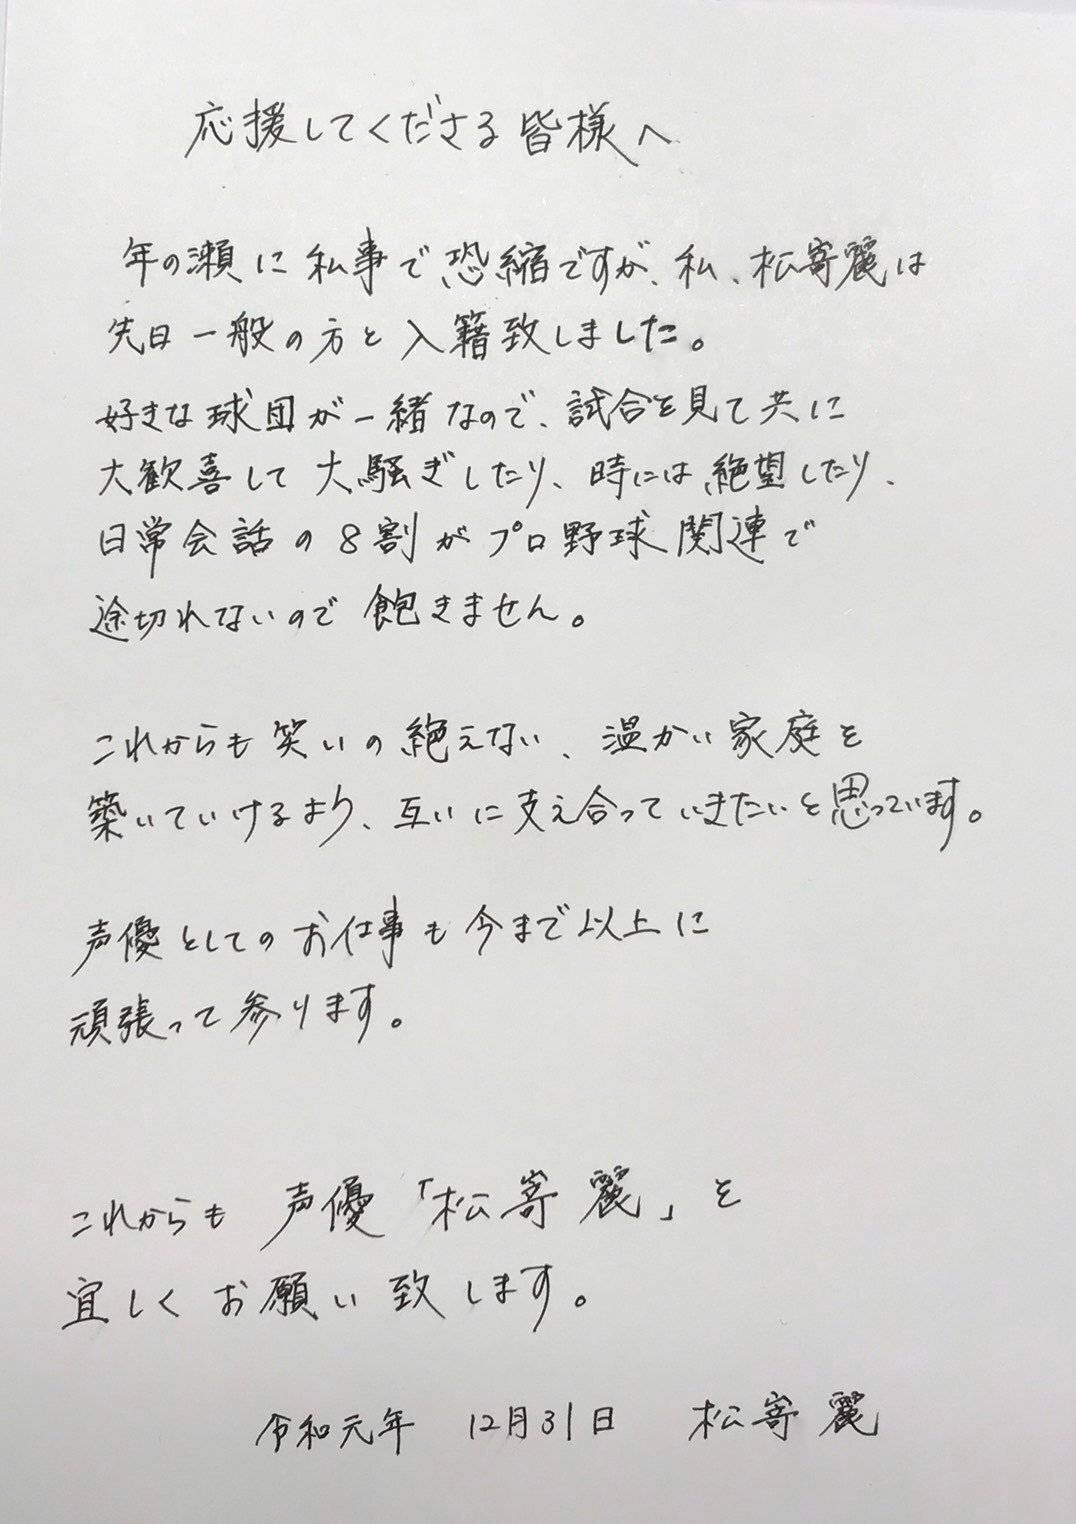 応援してくださる皆様へ
年の瀬に私事で恐縮ですが、私、松嵜麗は
先日一般の方と入籍致しました。
好きな球団が一緒なので、試合を見て共に
大歓喜して大騒ぎしたり、時には絶望したり、
日常会話の8割がプロ野球関連で
途切れないので飽きません。
これからも笑いの絶えない、温かい家庭を
築いていけるよう、互いに支え合っていきたいと思っています。
声優としてのお仕事も今まで以上に
頑張って参ります。
これからも声優「松嵜麗」を
宜しくお願い致します。
令和元年 12月31日 松嵜麗